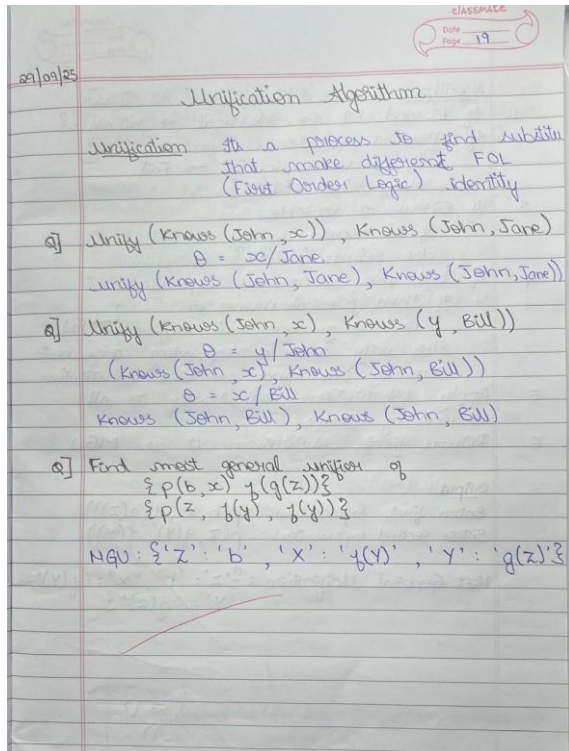 classmate
Date
Page 19
29/09/25
Unification Algorithm
Unification Its a process to find substitu
that make different FOL
(First Order Logic) identity
Q] Unify (Knows (John, x)), Knows (John, Jane)
θ = x/Jane
unify (Knows (John, Jane), Knows (John, Jane))
Q] Unify (Knows (John, x), Knows (y, Bill))
θ = y/John
(Knows (John, x), Knows (John, Bill))
θ = x/Bill
Knows (John, Bill), Knows (John, Bill)
Q] Find most general unifier of
{p(b, x) f(g(z))}
{p(z, f(y), f(y))}
MGU: {'Z': 'b', 'X': 'f(Y)', 'Y': 'g(z)'}